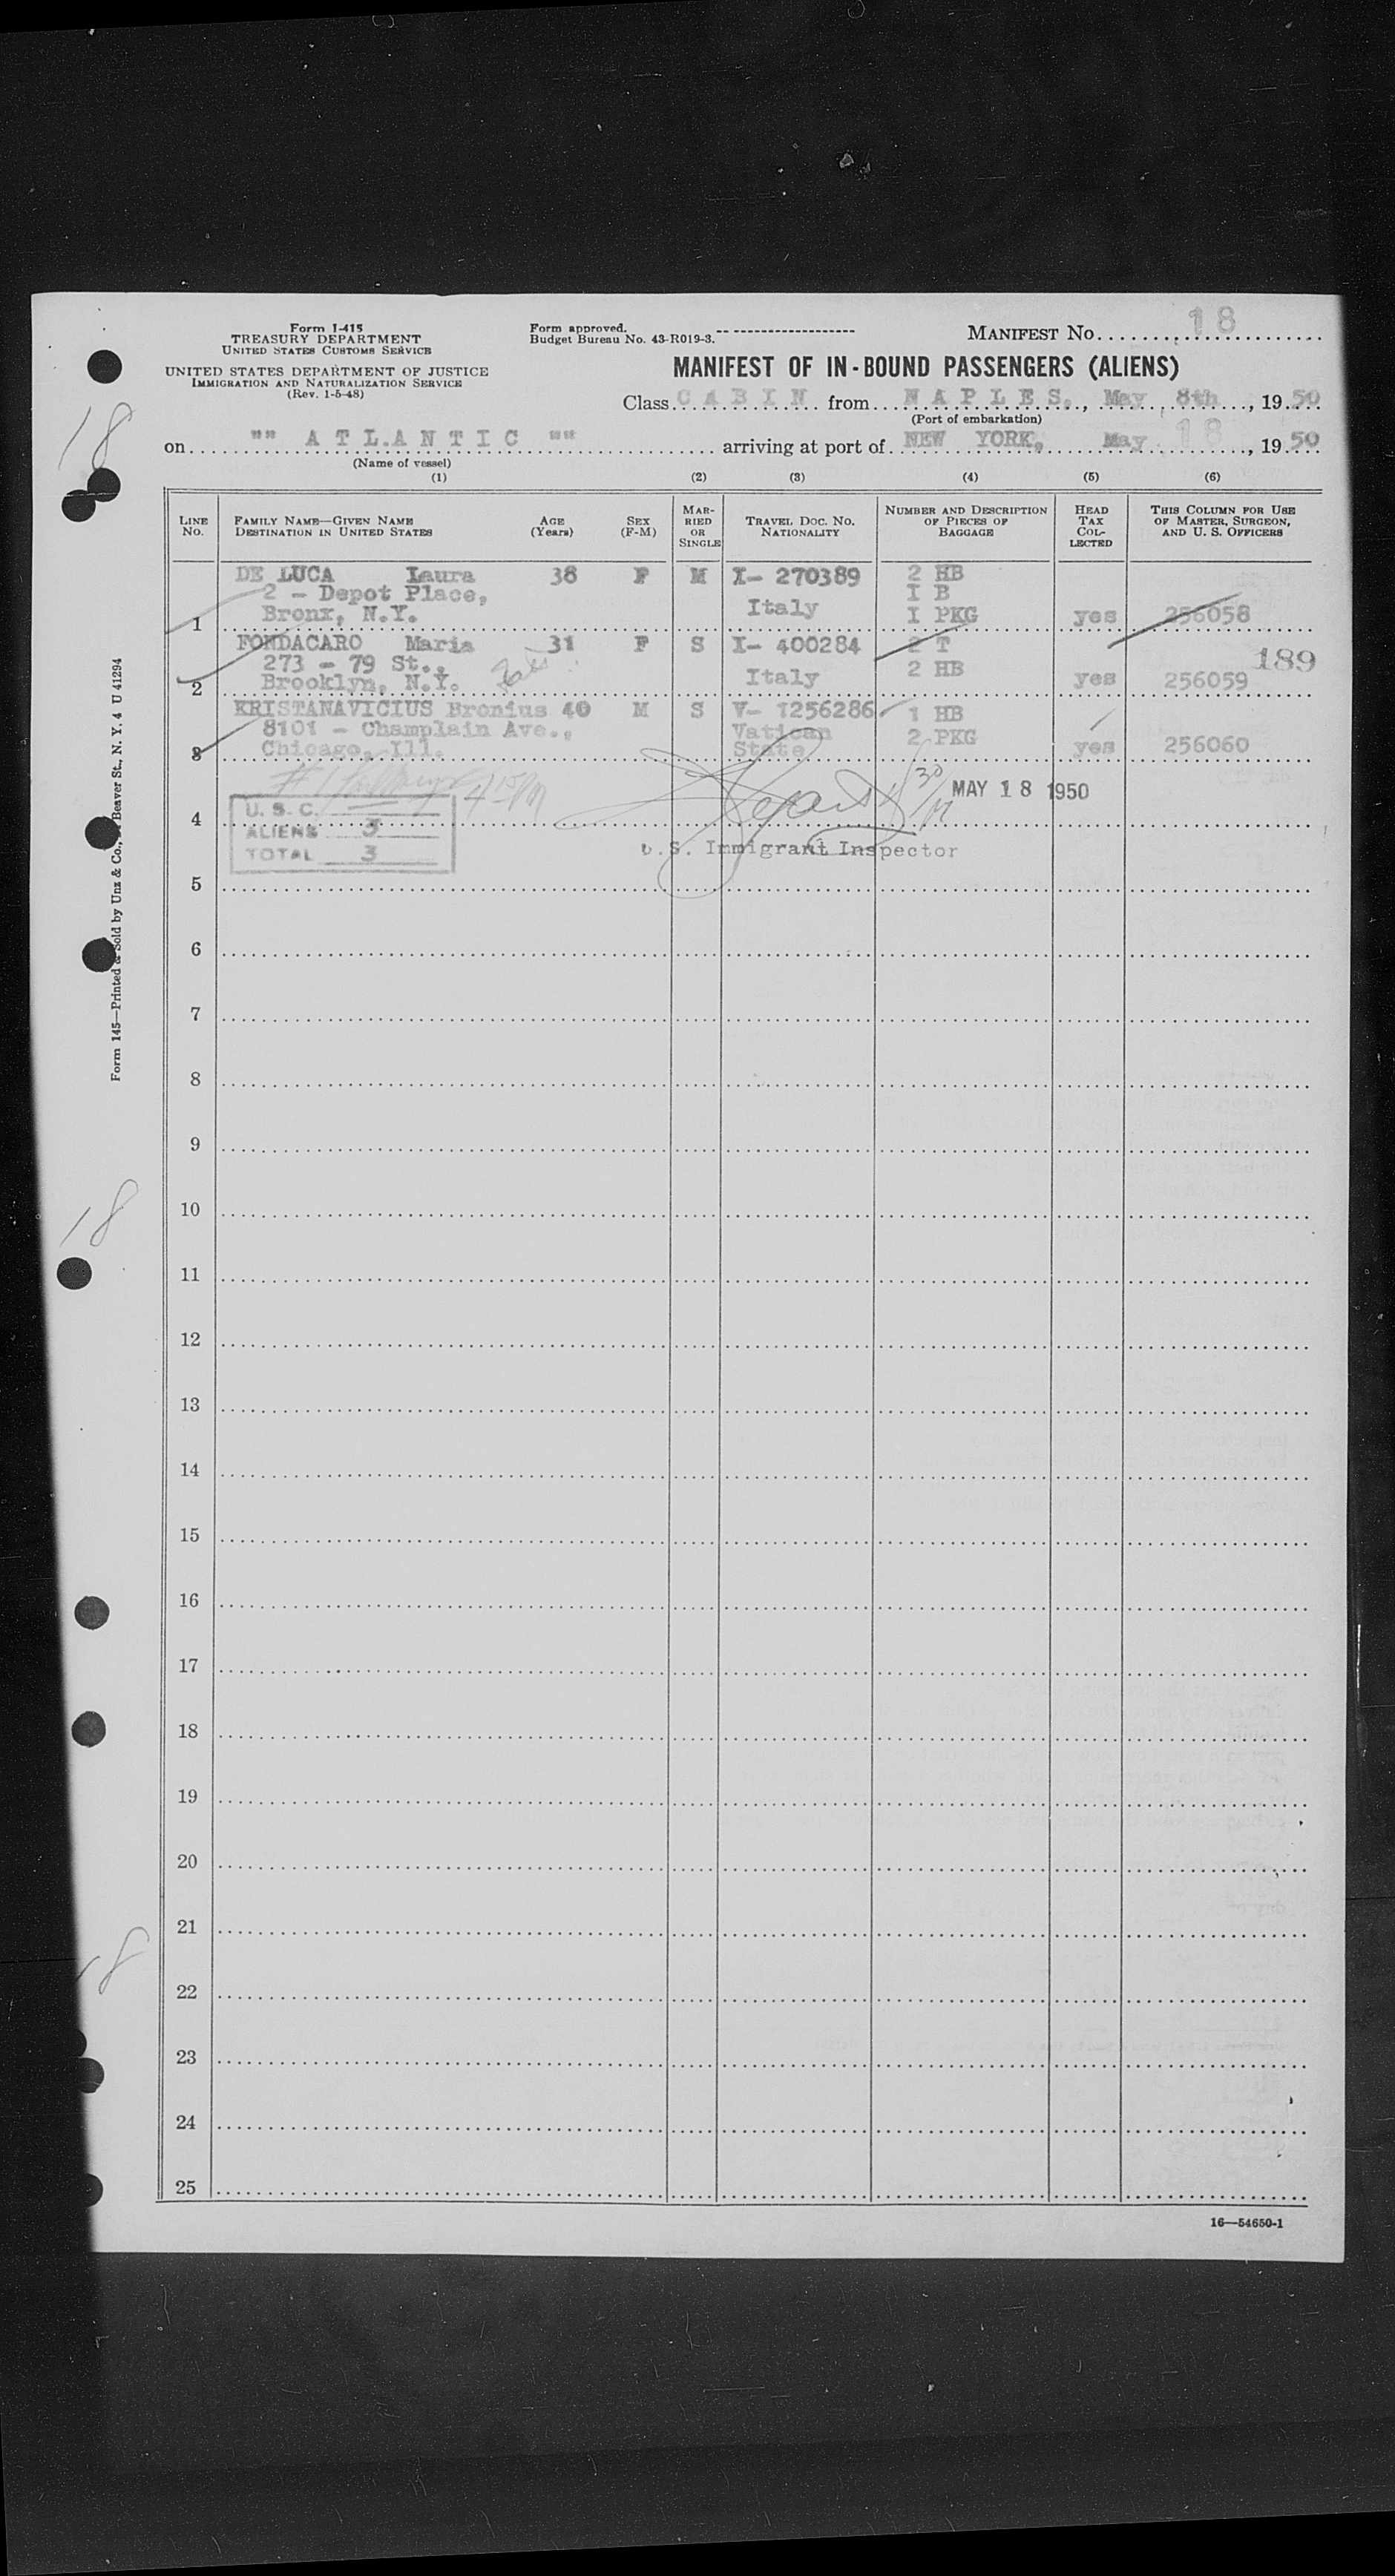 Form I-415
TREASURY DEPARTMENT
UNITED STATES CUSTOMS SERVICE
UNITED STATES DEPARTMENT OF JUSTICE
IMMIGRATION AND NATURALIZATION SERVICE
(Rev. 1-5-48)
Form approved.
Budget Bureau No. 43-R019-3.
MANIFEST No. 18
MANIFEST OF IN-BOUND PASSENGERS (ALIENS)
Class CABIN from NAPLES, May 8th, 1950
(Port of embarkation)
on "" ATLANTIC "" arriving at port of NEW YORK, May 18, 1950
(Name of vessel)
(1) (2) (3) (4) (5) (6)
LINE No. FAMILY NAME—GIVEN NAME DESTINATION IN UNITED STATES AGE (Years) SEX (F-M) MARRIED OR SINGLE TRAVEL DOC. NO. NATIONALITY NUMBER AND DESCRIPTION OF PIECES OF BAGGAGE HEAD TAX COLLECTED THIS COLUMN FOR USE OF MASTER, SURGEON, AND U. S. OFFICERS
DE LUCA Laura 38 F M I- 270389 2 HB
2 - Depot Place, I B
1 Bronx, N.Y. Italy I PKG yes 256058
FONDACARO Maria 31 F S I- 400284 2 T
273 - 79 St., 2 HB 189
2 Brooklyn, N.Y. Italy yes 256059
KRISTANAVICIUS Bronius 40 M S V- 1256286 1 HB
8101 - Champlain Ave., Vatican 2 PKG
3 Chicago, Ill. State yes 256060
MAY 18 1950
U. S. C.
4 ALIENS 3
TOTAL 3
U.S. Immigrant Inspector
5
6
7
8
9
10
11
12
13
14
15
16
17
18
19
20
21
22
23
24
25
16—54650-1
Form 145—Printed & Sold by Unz & Co., Beaver St., N. Y. 4 U 41294
18
18
18